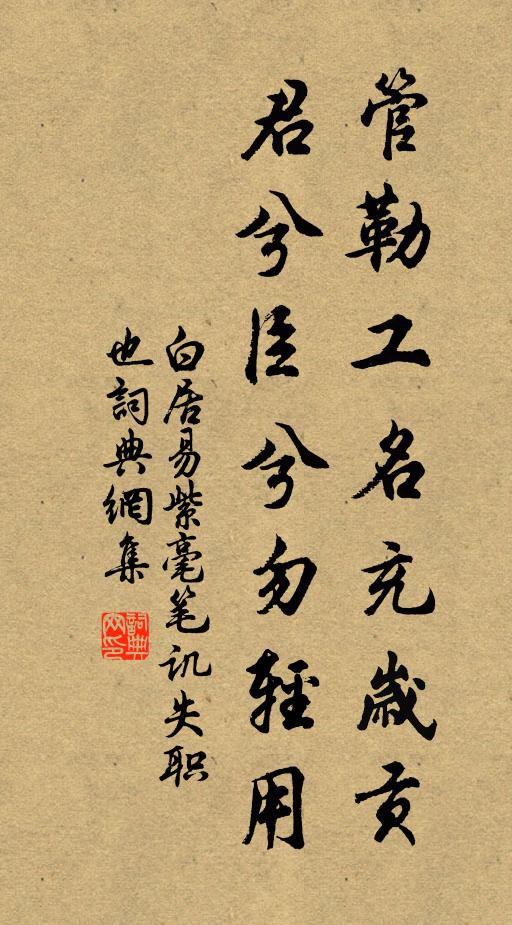 管勒工名充歲貢
君兮臣兮勿輕用
白居易紫毫笔讥失职
也詞典網集
詞典網印